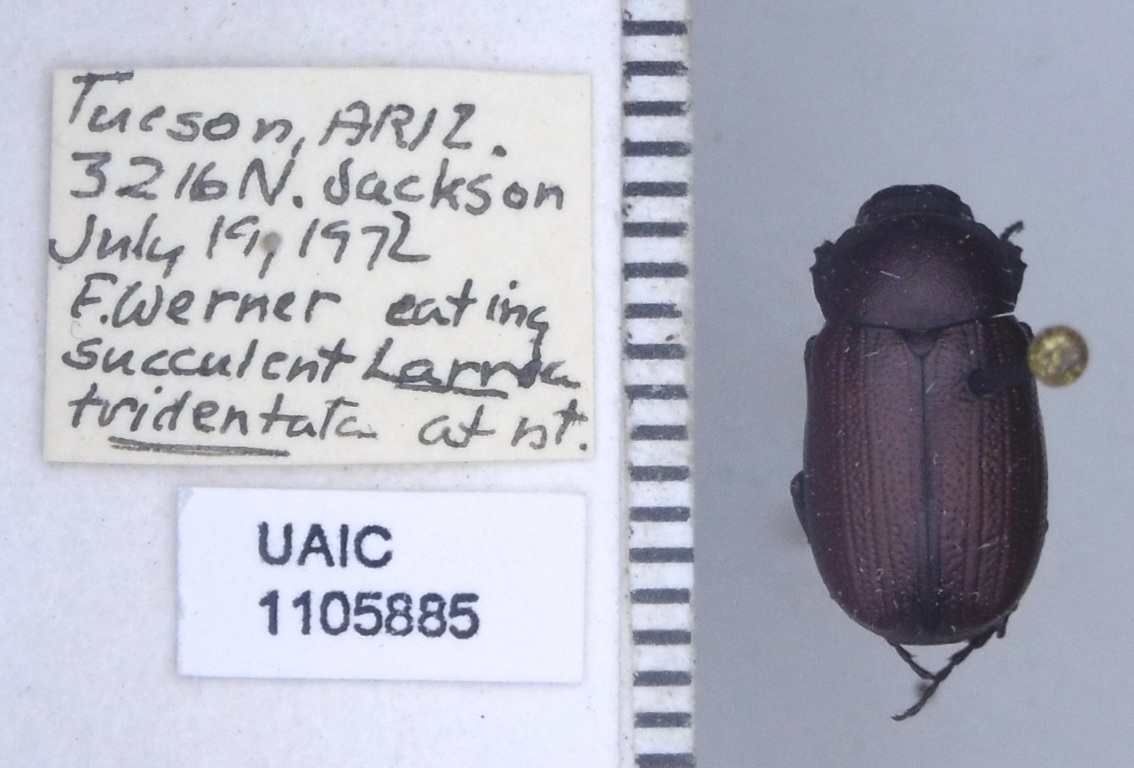 Tucson, ARIZ.
3216 N. Jackson
July 19, 1972
F. Werner eating
succulent Larrea
tridentata at nt.
UAIC
1105885